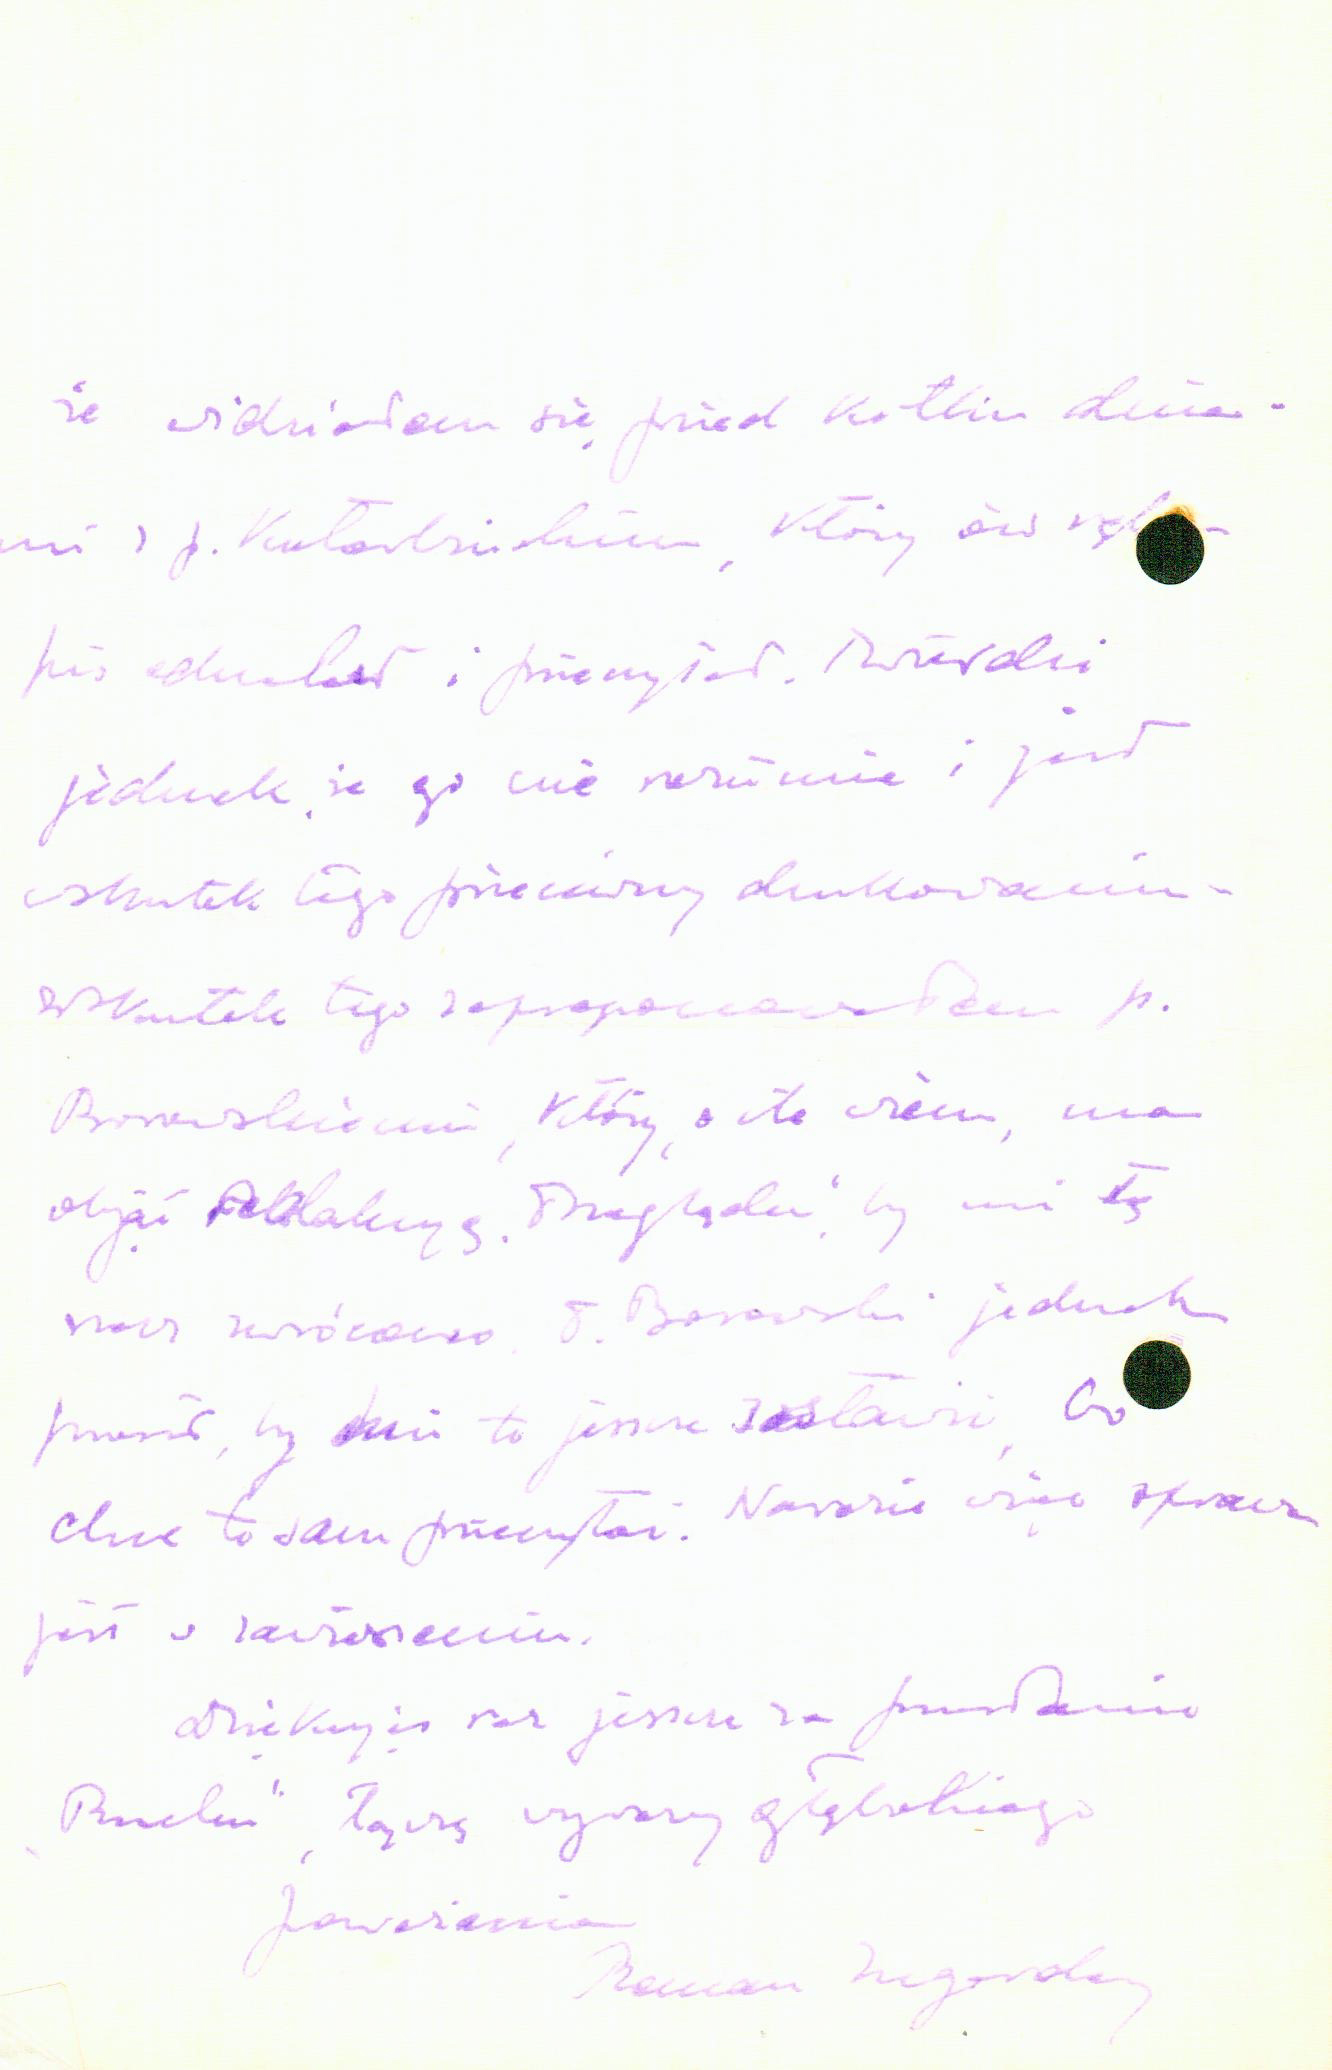 że widziałem się przed kilku dnia-
mi z p. Kotarbińskim, który ów ręko-
pis odnalazł i przeczytał. Twierdzi
jednak, że go nie rozumie i jest
wskutek tego przeciwny drukowaniu -
wskutek tego zaproponowałem p.
Borowskiemu, który, o ile wiem, ma
objąć redakcyę "Przeglądu", by mi tę
rzecz zwrócono. P. Borowski jednak
prosił, by mu to jeszcze zostawić, bo
chce to sam przeczytać. Narazie więc sprawa
jest w zawieszeniu.
Dziękując raz jeszcze za przysłanie
"Ruchu", łączę wyrazy głębokiego
poważania
Roman Ingarden